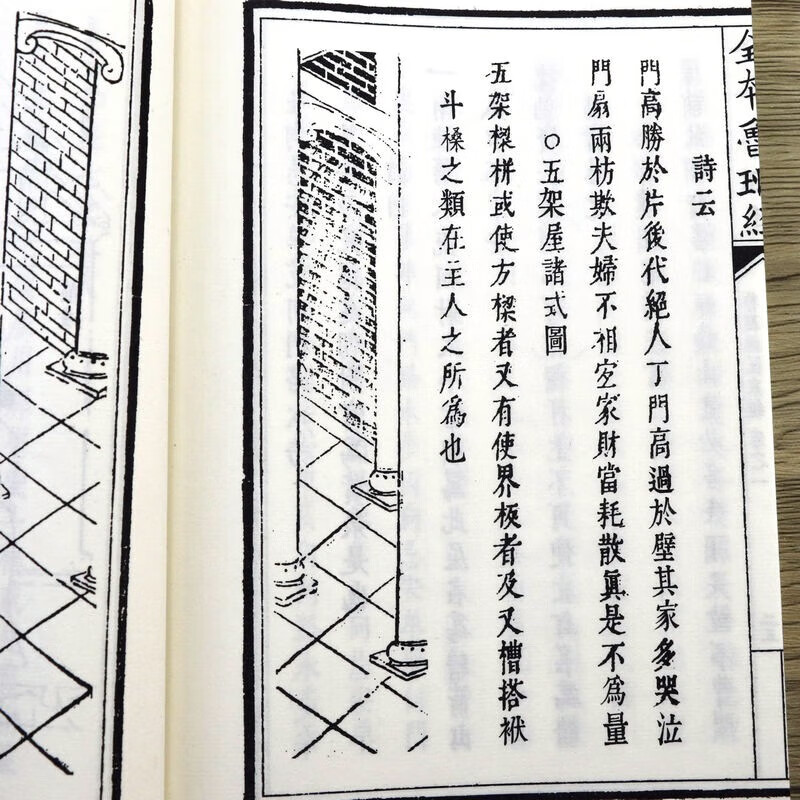 全本魯班經
詩云
門高勝於片後代絕人丁門高過於壁其家多哭泣
門扇兩枋欺夫婦不相宜家財當耗散眞是不爲量
○五架屋諸式圖
五架樑栟或使方樑者又有使界板者及又槽搭栿
斗槡之類在主人之所爲也